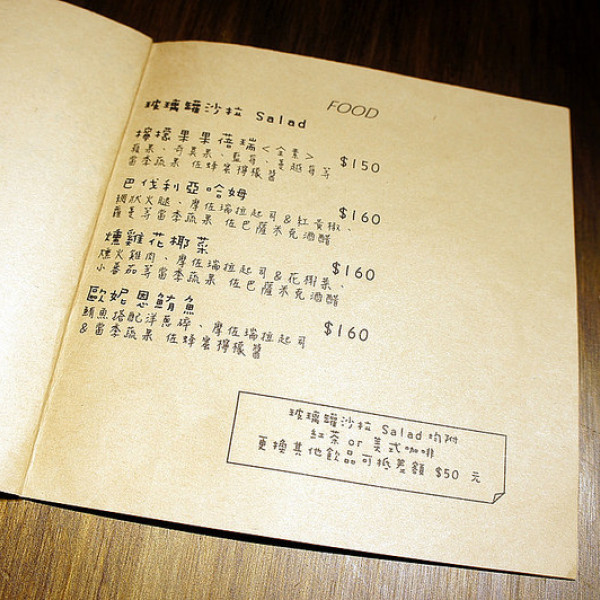 FOOD
玻璃罐沙拉 Salad
檸檬果果蓓瑞＜全素＞ $150
蘋果、奇異果、藍莓、蔓越莓等
當季蔬果 佐蜂蜜檸檬醬
巴伐利亞哈姆 $160
網狀火腿、摩佐瑞拉起司&紅黃椒、
蘿蔓等當季蔬果 佐巴薩米克酒醋
燻雞花椰菜 $160
燻火雞肉、摩佐瑞拉起司&花椰菜、
小番茄等當季蔬果 佐巴薩米克酒醋
歐妮恩鮪魚 $160
鮪魚搭配洋蔥碎、摩佐瑞拉起司
&當季蔬果 佐蜂蜜檸檬醬
玻璃罐沙拉 Salad 均附
紅茶 or 美式咖啡
更換其他飲品可抵差額 $50 元